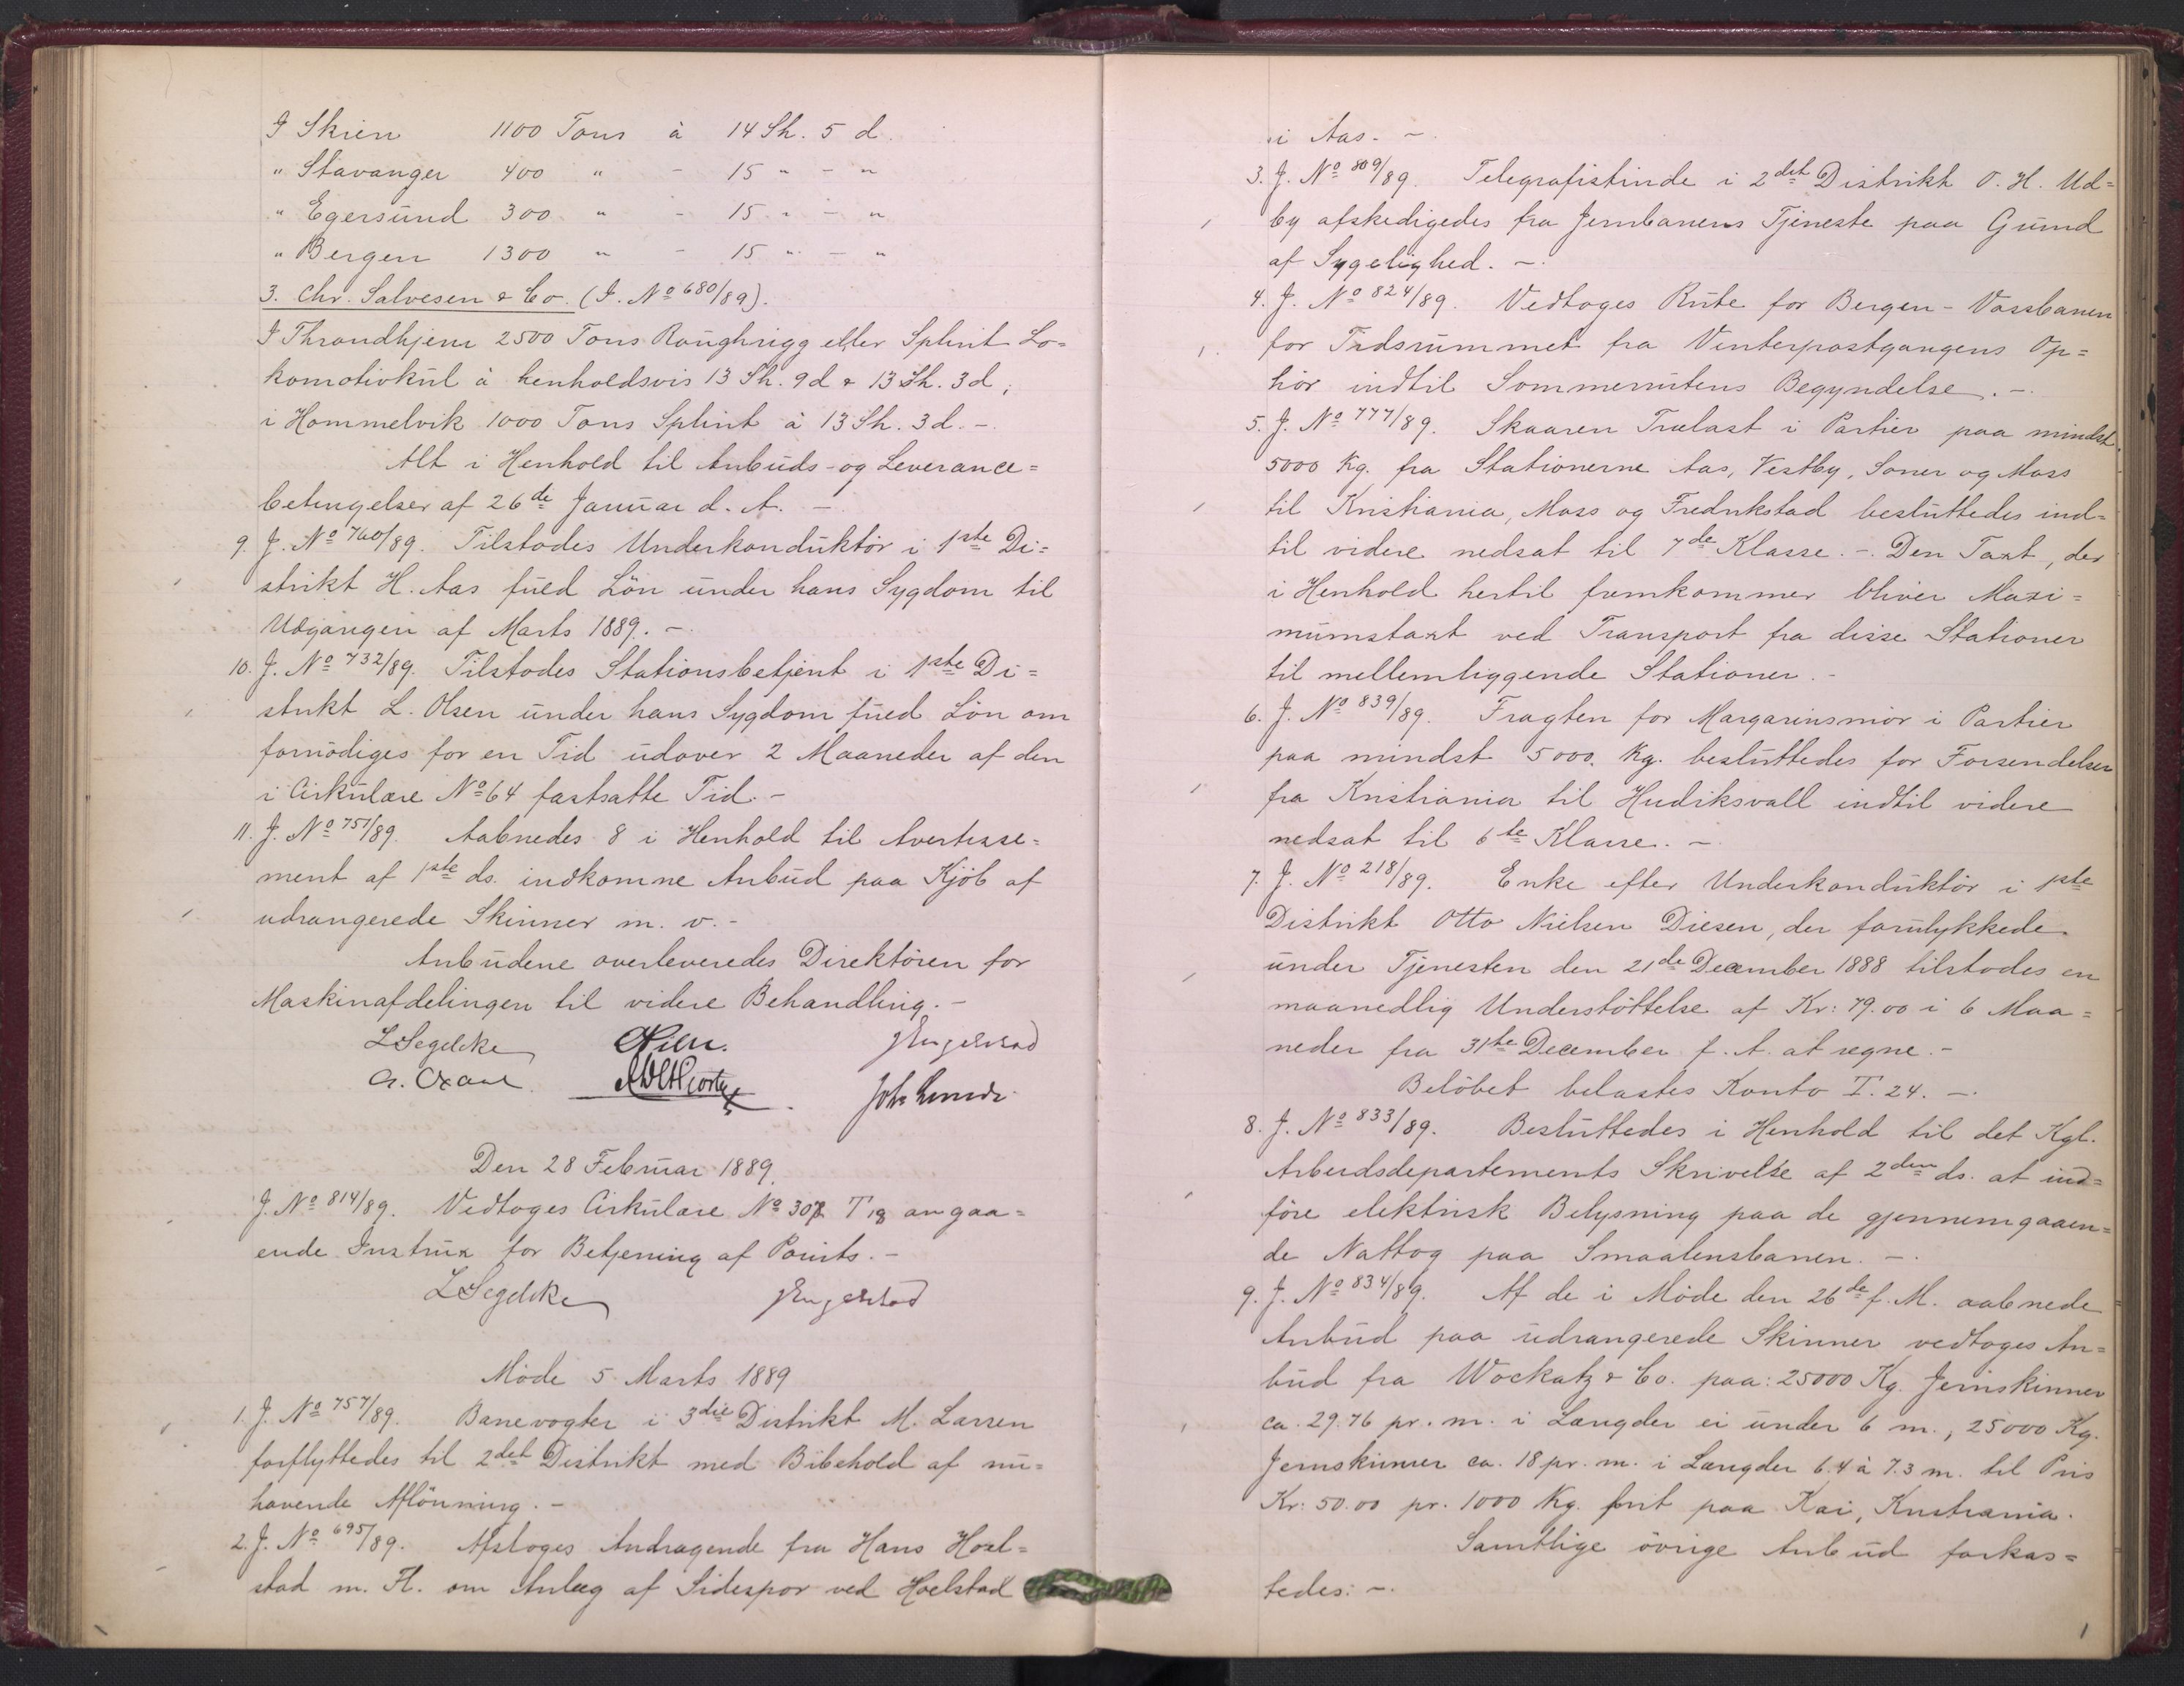 I Skien 1100 Tons à 14 Sh. 5 d.
" Stavanger 400 " - 15 " - "
" Egersund 300 " - 15 " - "
" Bergen 1300 " - 15 " - "
3. Chr. Salvesen & Co. (J. No 680/89).
I Throndhjem 2500 Tons Roughrigg eller Splint Lo=
komotivkul à henholdsvis 13 Sh. 9d & 13 Sh. 3d,
i Hommelvik 1000 Tons Splint à 13 Sh. 3d. -
Alt i Henhold til Anbuds- og Leverance=
betingelser af 26de Januar d. A. -
9. J. No 760/89. Tilstodes Underkonduktör i 1ste Di=
strikt H. Aas fuld Lön under hans Sygdom til
Udgangen af Marts 1889. -
10. J. No 732/89. Tilstodes Stationsbetjent i 1ste Di=
strikt L. Olsen under hans Sygdom fuld Lön om
fornödiges for en Tid udover 2 Maaneder af den
i Cirkulære No 64 fastsatte Tid. -
11. J. No 751/89. Aabnedes 8 i Henhold til Avertisse=
ment af 1ste ds. indkomne Anbud paa Kjöb af
udrangerede Skinner m. v. -
Anbudene overleveredes Direktören for
Maskinafdelingen til videre Behandling. -
LSegelcke JEngelstad
Den 28 Februar 1889.
J. No 814/89. Vedtoges Cirkulære No 307 T 18 angaa=
ende Instrux for Betjening af Points. -
LSegelcke JEngelstad
Möde 5 Marts 1889
1. J. No 757/89. Banevogter i 3die Distrikt M. Larsen
forflyttedes til 2det Distrikt med Bibehold af nu=
havende Aflönning. -
2. J. No 695/89. Afsloges Andragende fra Hans Hoel=
stad m. Fl. om Anlæg af Sidespor ved Hoelstad
i Aas. -
3. J. No 809/89. Telegrafistinde i 2det Distrikt O. H. Ud=
by afskedigedes fra Jernbanens Tjeneste paa Grund
af Sygelighed. -
4. J. No 824/89. Vedtoges Rute for Bergen - Vossbanen
for Tidsrummet fra Vinterpostgangens Op=
hör indtil Sommerrutens Begyndelse. -
5. J. No 777/89. Skaaren Trælast i Partier paa mindst
5000 Kg. fra Stationerne Aas, Vestby, Soner og Moss
til Kristiania, Moss og Fredrikstad besluttedes ind=
til videre nedsat til 7de Klasse. - Den Taxt, der
i Henhold hertil fremkommer bliver Maxi=
mumstaxt ved Transport fra disse Stationer
til mellemliggende Stationer. -
6. J. No 839/89. Fragten for Margarinsmör i Partier
paa mindst 5000 Kg. besluttedes for Forsendelser
fra Kristiania til Hudiksvall indtil videre
nedsat til 6te Klasse. -
7. J. No 218/89. Enke efter Underkonduktör i 1ste
Distrikt Otto Nielsen Diesen, der forulykkede
under Tjenesten den 21de December 1888 tilstodes en
maanedlig Understöttelse af Kr: 79.00 i 6 Maa=
neder fra 31te December f. A. at regne. -
Belöbet belastes Konto I. 24. -
8. J. No 833/89. Besluttedes i Henhold til det Kgl.
Arbeidsdepartements Skrivelse af 2den ds. at ind=
före elektrisk Belysning paa de gjennemgaaen=
de Nattog paa Smaalensbanen. -
9. J. No 834/89. Af de i Möde den 26de f. M. aabnede
Anbud paa udrangerede Skinner vedtoges An=
bud fra Wockatz & Co. paa: 25000 Kg. Jernskinner
ca. 29.76 pr. m. i Længder ei under 6 m., 25000 Kg.
Jernskinner ca. 18 pr. m. i Længder 6.4 à 7.3 m. til Pris
Kr: 50.00 pr. 1000 Kg. frit paa Kai, Kristiania.
Samtlige övrige Anbud forkas=
tedes: -